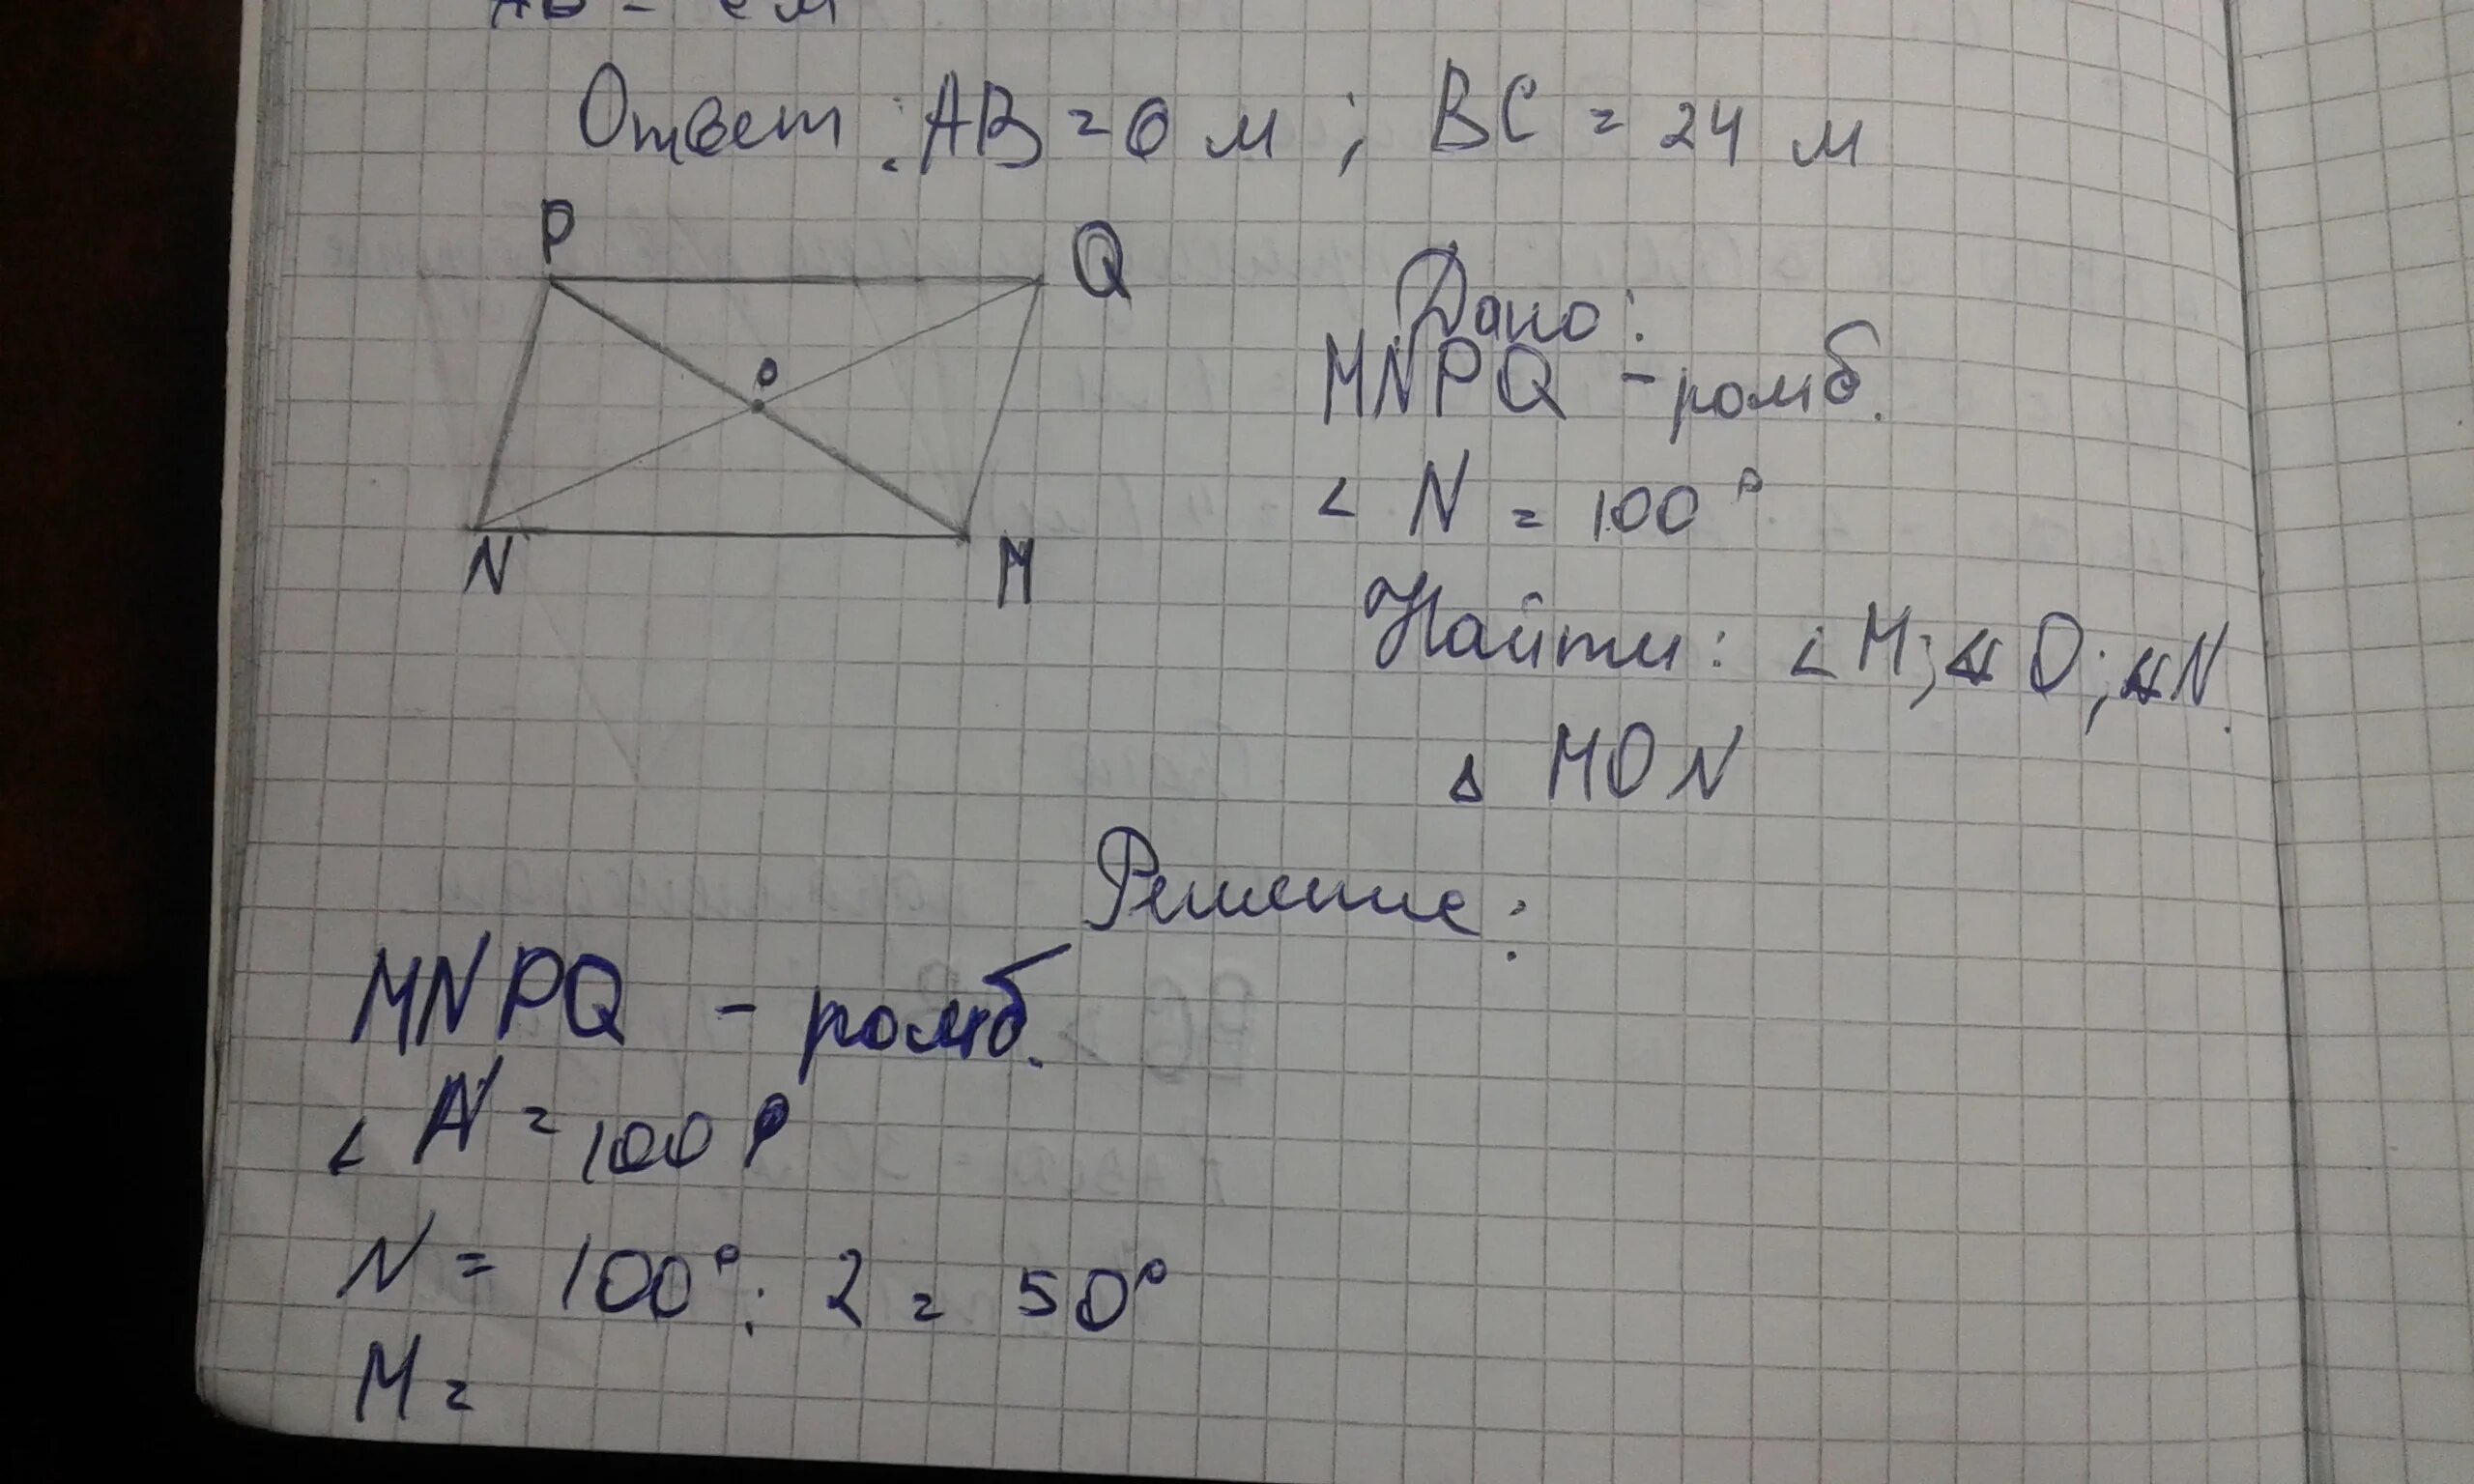 Ответ: AB = 6 м; BC = 24 м
P
Q
O
N
M
Дано:
MNPQ - ромб.
∠ N = 100°
Найти: ∠ M; ∠ O; ∠ N.
Δ MON
Решение:
MNPQ - ромб.
∠ N = 100°
N = 100° : 2 = 50°
M =